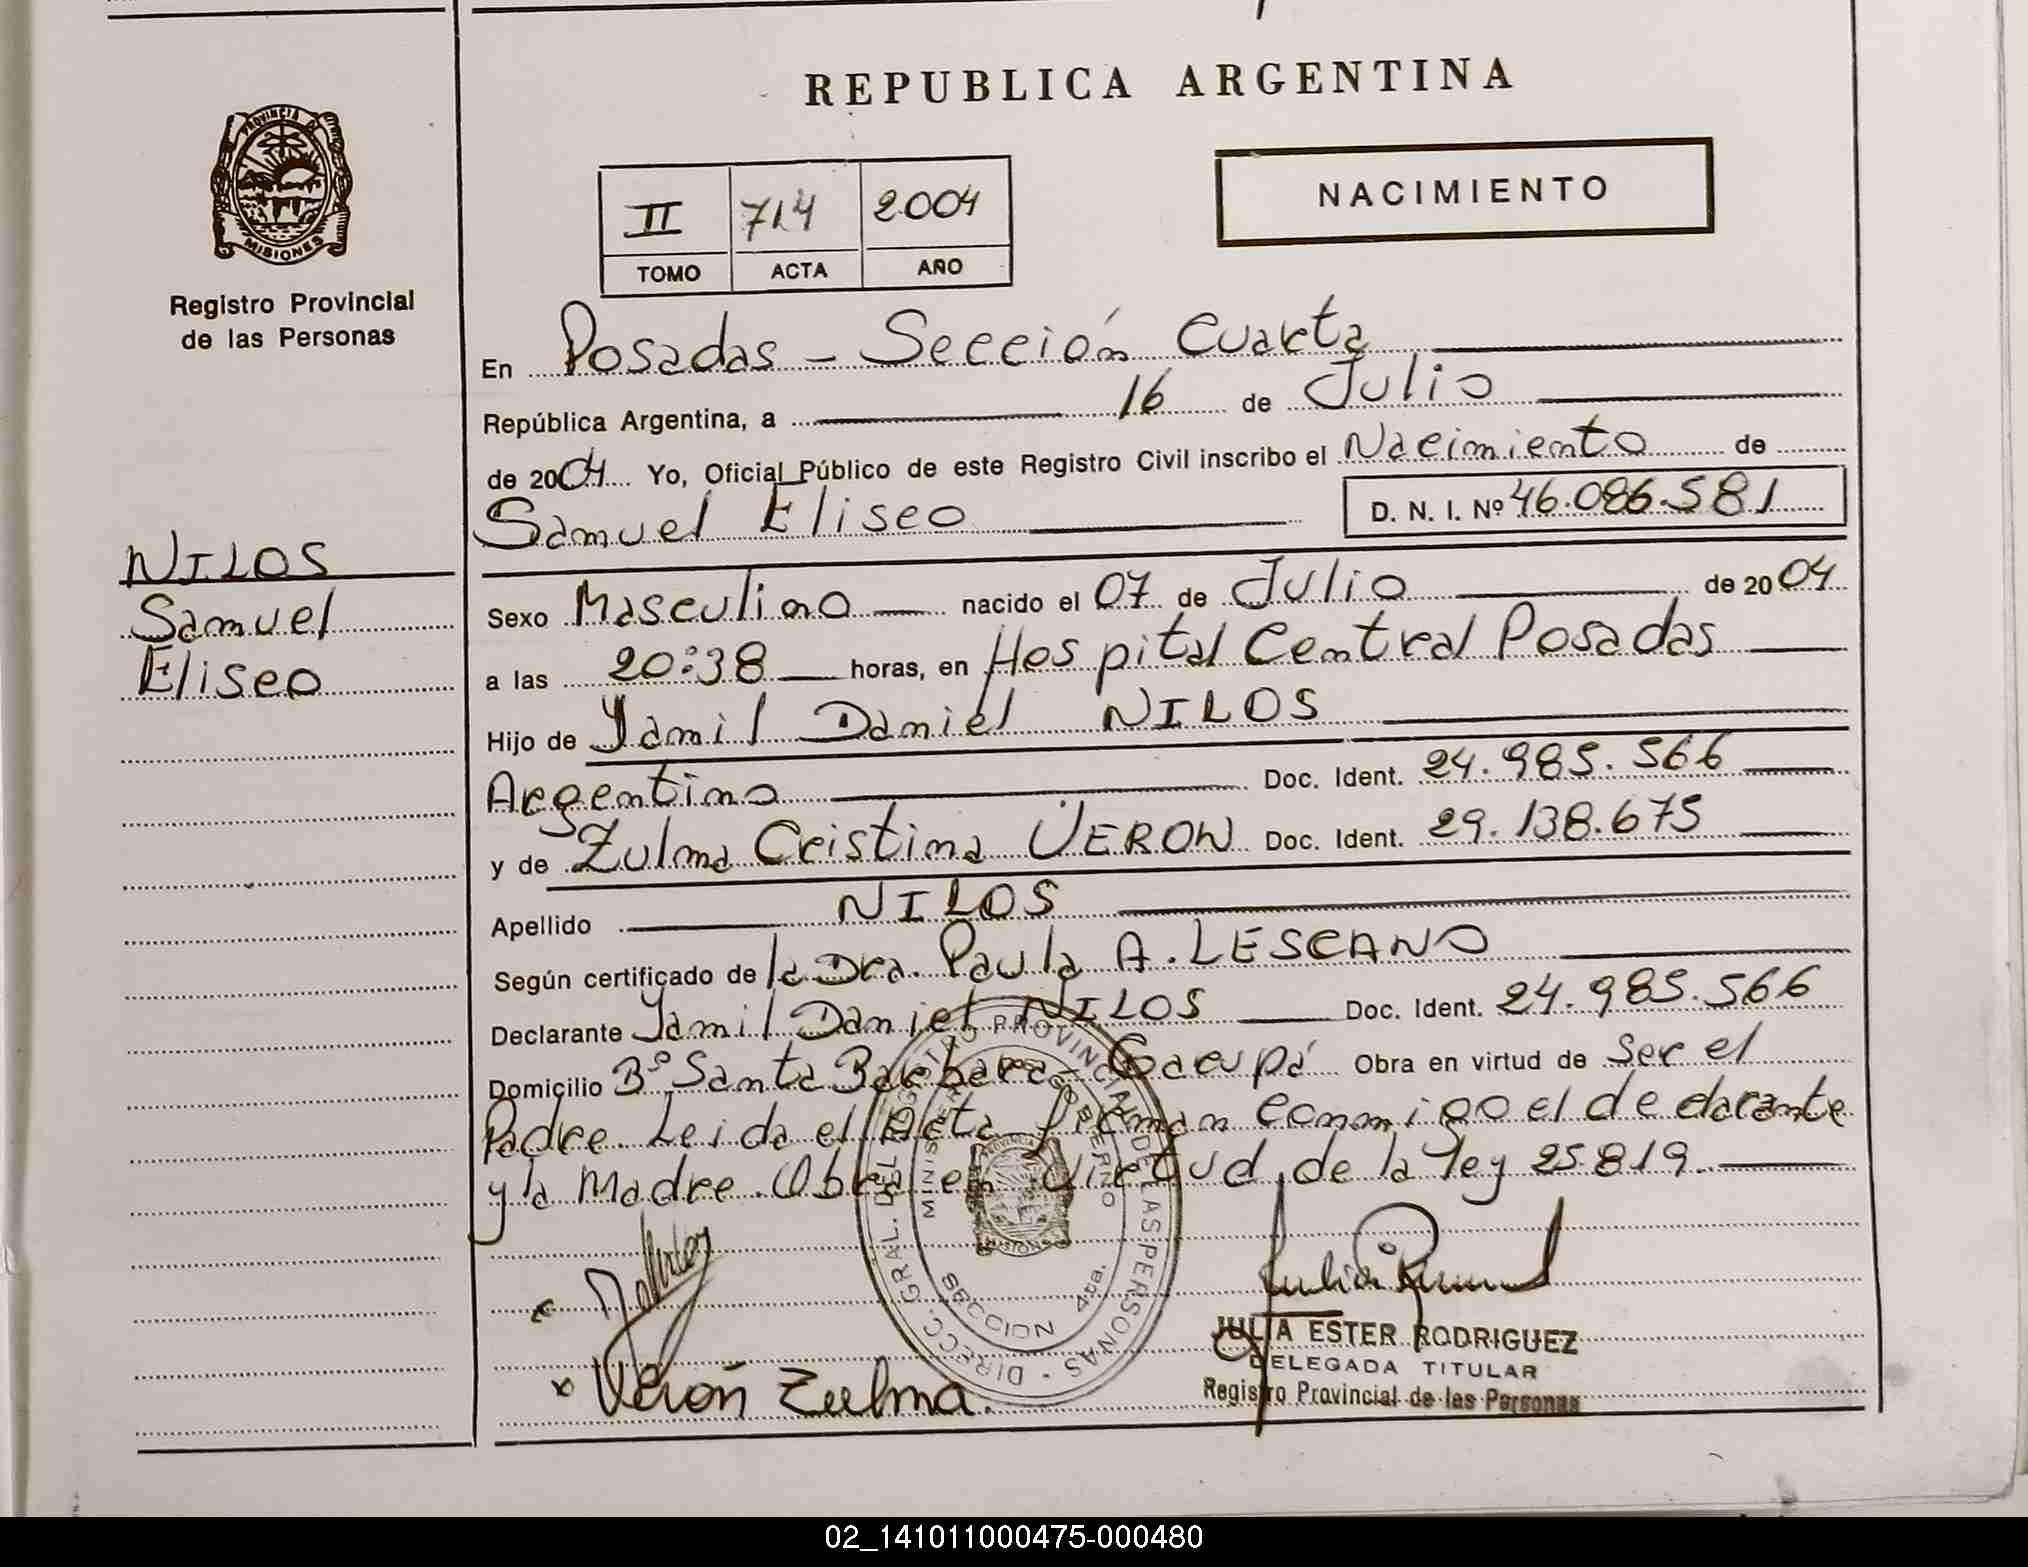 REPUBLICA ARGENTINA
PROVINCIA DE
MISIONES
Registro Provincial
de las Personas
II 714 2004
TOMO ACTA AÑO
NACIMIENTO
En Posadas - Sección Cuarta
República Argentina, a 16 de Julio
de 2004 Yo, Oficial Público de este Registro Civil inscribo el Nacimiento de
Samuel Eliseo D. N. I. Nº 46.086.581
NILOS
Samuel
Eliseo
Sexo Masculino nacido el 07 de Julio de 2004
a las 20:38 horas, en Hospital Central Posadas
Hijo de Yamil Daniel NILOS
Argentino Doc. Ident. 24.985.566
y de Zulma Cristina VERON Doc. Ident. 29.138.675
Apellido NILOS
Según certificado de la Dra. Paula A. LESCANO
Declarante Yamil Daniel NILOS Doc. Ident. 24.985.566
Domicilio Bº Santa Barbara - Garupá Obra en virtud de Ser el
Padre. Leida el Acta firman conmigo el declarante
y la Madre. Obra en virtud de la ley 25.819.
DIRECC. GRAL. DEL REGISTRO PROVINCIAL DE LAS PERSONAS
SECCION 4ta.
x Verón Zulma.
JULIA ESTER RODRIGUEZ
DELEGADA TITULAR
Registro Provincial de las Personas
02_141011000475-000480